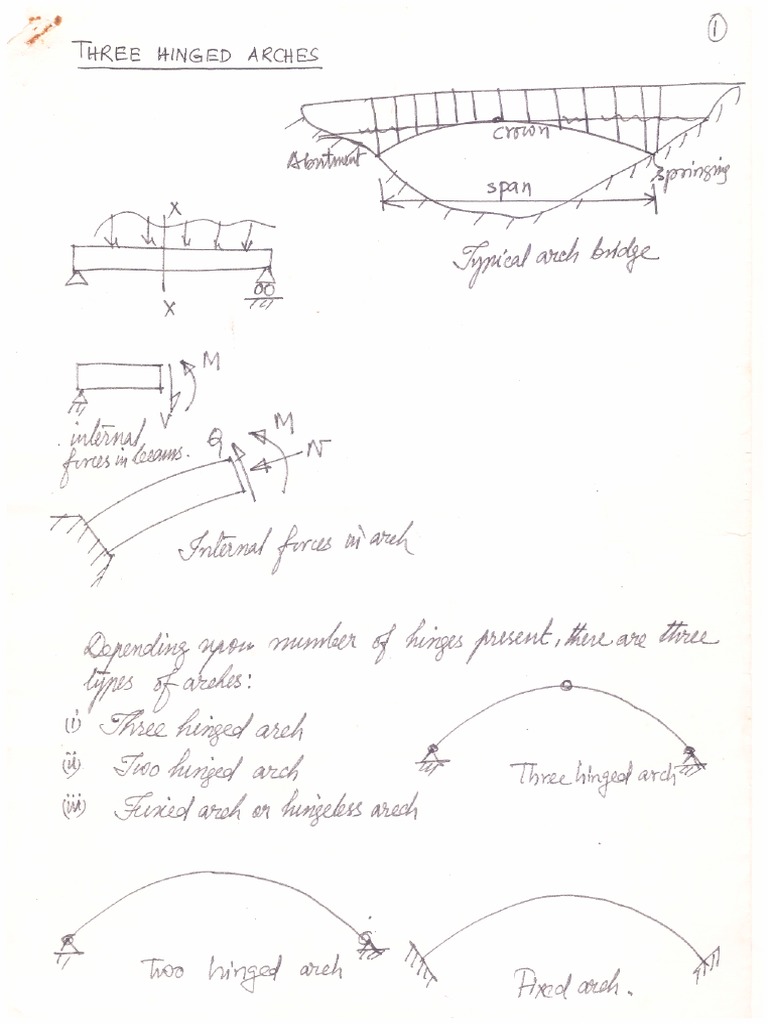 1
THREE HINGED ARCHES
crown
Abutment
springing
span
Typical arch bridge
X
X
M
V
internal
forces in beams.
Q
M
N
Internal forces in arch
Depending upon number of hinges present, there are three
types of arches:
(i) Three hinged arch
(ii) Two hinged arch
(iii) Fixed arch or hingeless arch
Three hinged arch
Two hinged arch
Fixed arch.